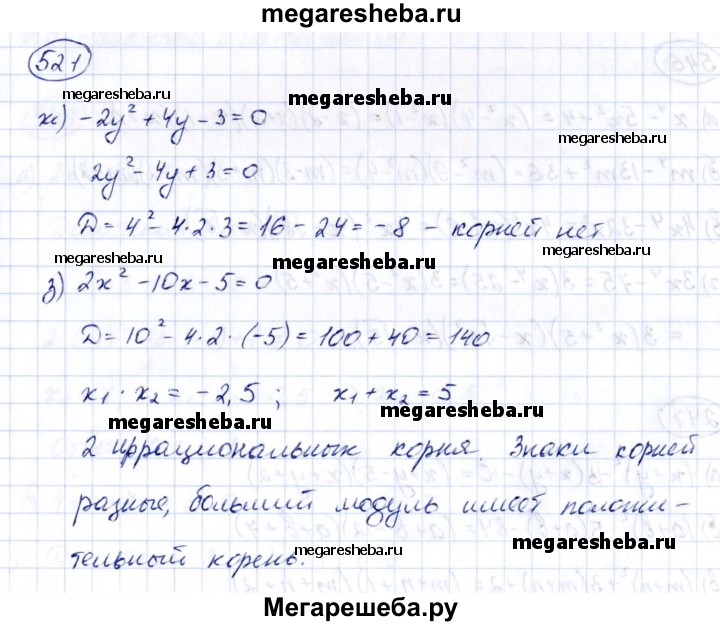 megaresheba.ru
521
megaresheba.ru
ж) -2y² + 4y - 3 = 0
megaresheba.ru
2y² - 4y + 3 = 0
D = 4² - 4·2·3 = 16 - 24 = -8 - корней нет
megaresheba.ru
megaresheba.ru
megaresheba.ru
з) 2x² - 10x - 5 = 0
D = 10² - 4·2·(-5) = 100 + 40 = 140
x₁ · x₂ = -2,5 ; x₁ + x₂ = 5
megaresheba.ru
megaresheba.ru
2 иррациональных корня. Знаки корней
megaresheba.ru
разные, больший модуль имеет положи-
megaresheba.ru
тельный корень.
Мегарешеба.ру